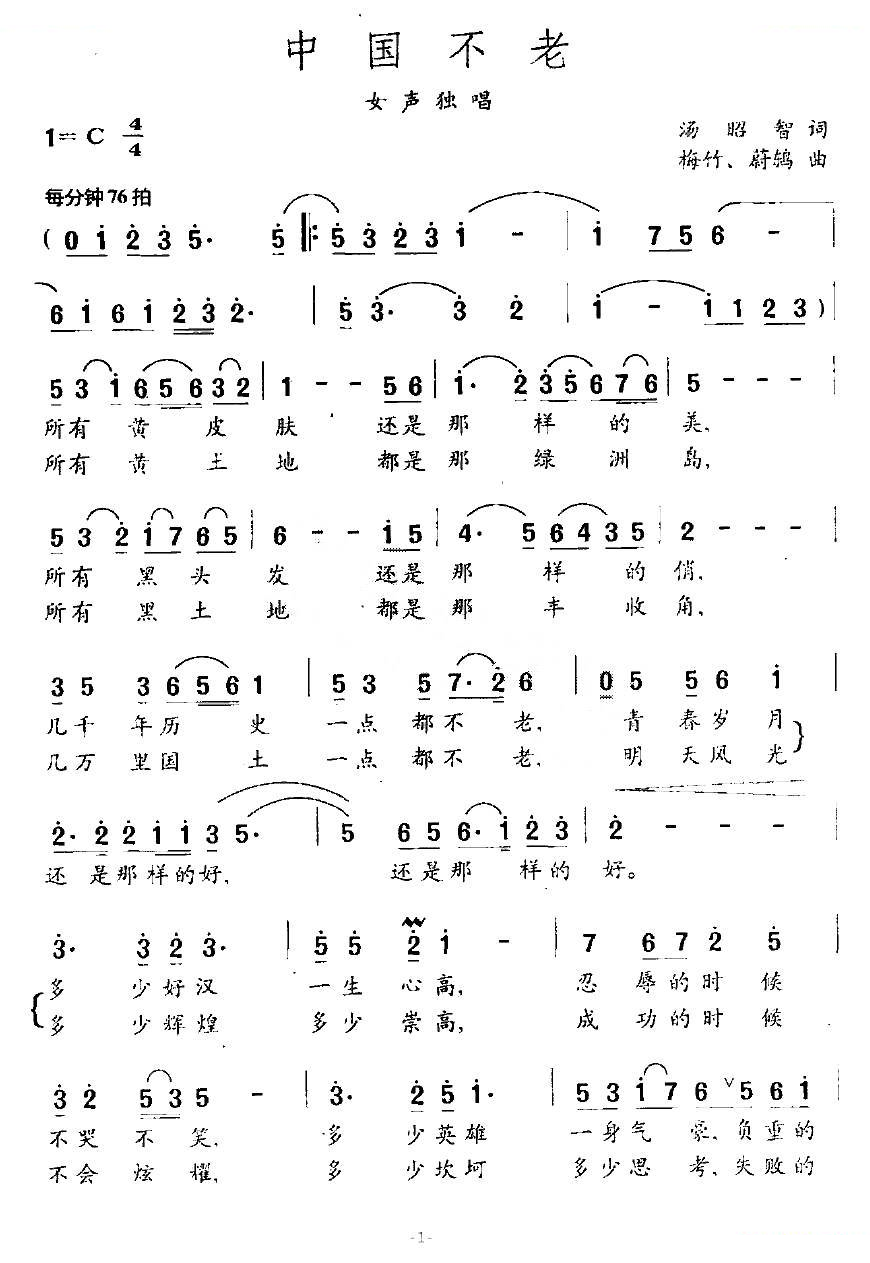 中国不老
女声独唱
1=C 4/4
汤昭智词
梅竹、蔚鸰曲
每分钟76拍
(0 1 2 3 5· 5 ‖: 5 3 2 3 1 - | 1 7 5 6 - |
6 1 6 1 2 3 2· | 5 3· 3 2 | 1 - 1 1 2 3 ) |
5 3 1 6 5 6 3 2 | 1 - - 5 6 | 1· 2 3 5 6 7 6 | 5 - - - |
所有黄皮肤还是那样的美,
所有黄土地都是那绿洲岛,
5 3 2 1 7 6 5 | 6 - - 1 5 | 4· 5 6 4 3 5 | 2 - - - |
所有黑头发还是那样的俏,
所有黑土地都是那丰收角,
3 5 3 6 5 6 1 | 5 3 5 7· 2 6 | 0 5 5 6 1 |
几千年历史一点都不老,青春岁月
几万里国土一点都不老,明天风光
2· 2 2 1 1 3 5· | 5 6 5 6· 1 2 3 | 2 - - - |
还是那样的好,还是那样的好。
3· 3 2 3· | 5 5 2 1 - | 7 6 7 2 5 |
多少好汉一生心高,忍辱的时候
多少辉煌多少崇高,成功的时候
3 2 5 3 5 - | 3· 2 5 1· | 5 3 1 7 6 ∨ 5 6 1 |
不哭不笑,多少英雄一身气豪,负重的
不会炫耀,多少坎坷多少思考,失败的
-1-